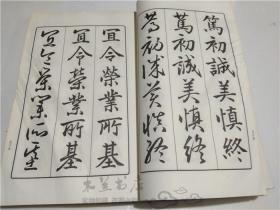 篤初誠美慎終
篤初誠美慎終
篤初誠美慎終
宜令榮業所基
宜令榮業所基
宜令榮業所基